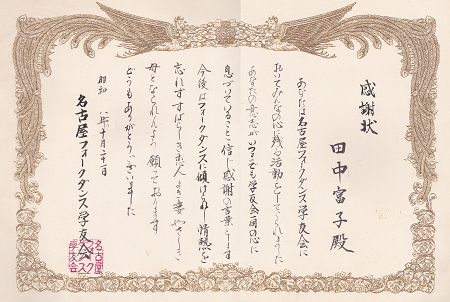 感謝状
田中富子殿
あなたは名古屋フォークダンス学友会に
おいてみんなの心に残る活動をしてくれました
あなたの意志がいつまでも学友会員の心に
息づいていることを信じ感謝の言葉とします
今後はフォークダンスに傾けられし情熱を
忘れずすばらしき恋人 よき妻 やさしき
母となられんよう 願っております
どうもありがとうございました
昭和 年十月二十一日
名古屋フォークダンス学友会
名古屋
学友会